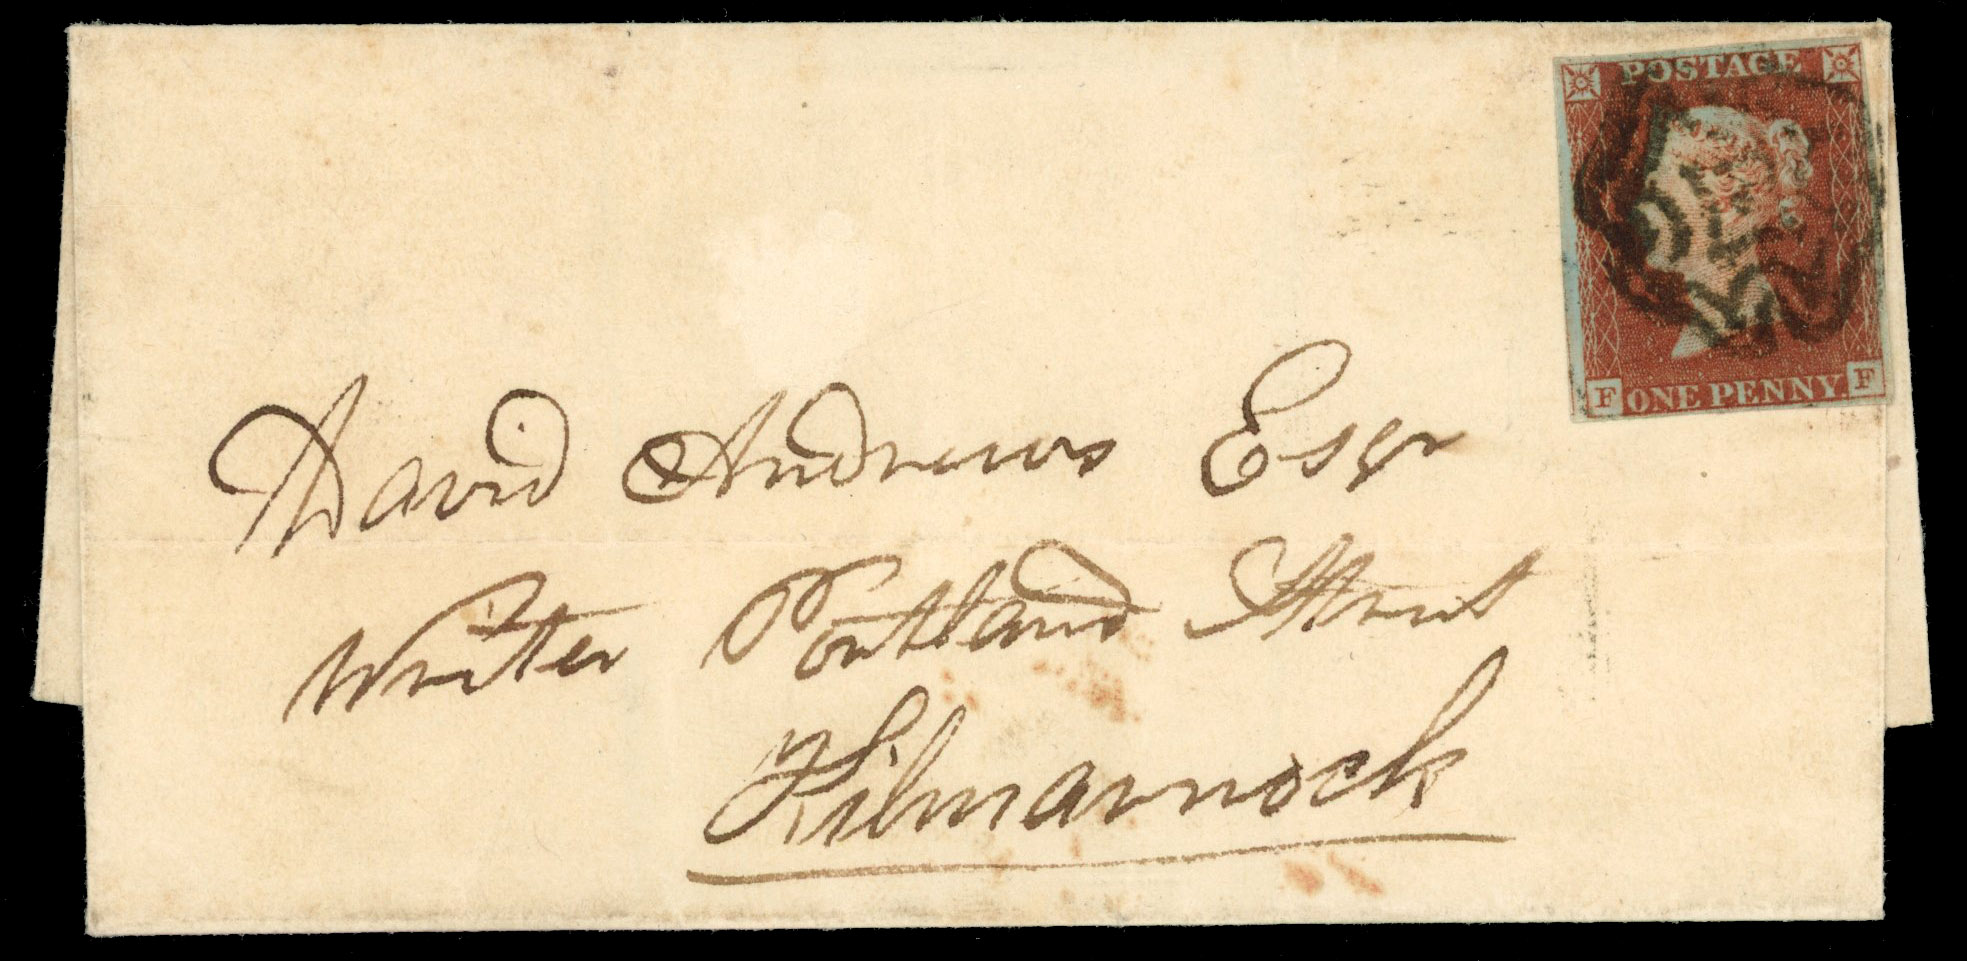 POSTAGE
F ONE PENNY. F
David Andrews Esqr
Writer Portland Street
Kilmarnock